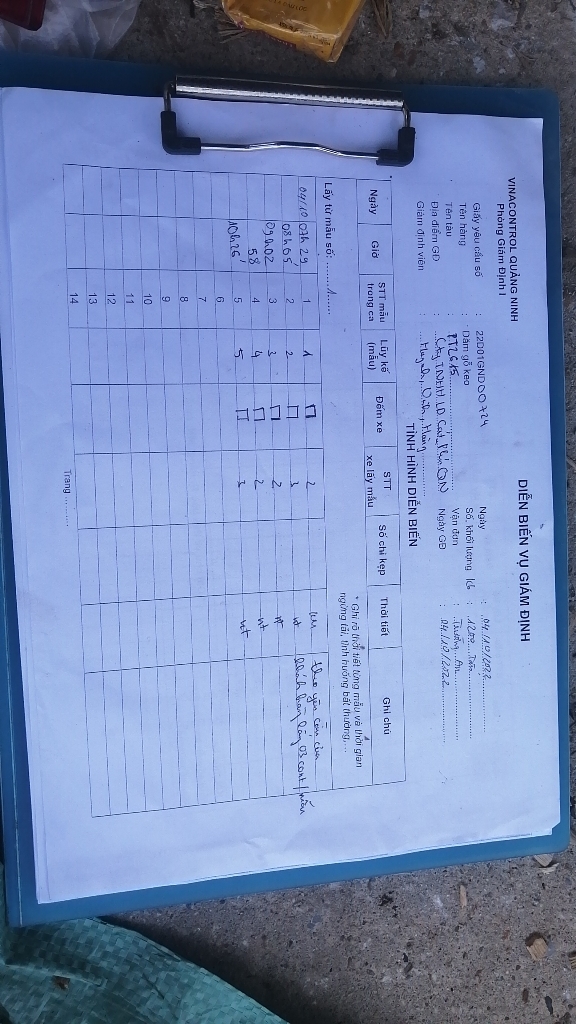 VINACONTROL QUẢNG NINH
Phòng Giám Định I
DIỄN BIẾN VỤ GIÁM ĐỊNH
Giấy yêu cầu số : 22D01GND00724
Ngày : 04/10/2022
Tên hàng : Dăm gỗ keo
Số, khối lượng : 1200 Tấn
Tên tàu : PT2615
Vận đơn : Trường An
Địa điểm GĐ : Cty TNHH LD Cát Phú QN
Ngày GĐ : 04/10/2022
Giám định viên :
TÌNH HÌNH DIỄN BIẾN
* Ghi rõ thời tiết từng mẫu và thời gian
ngừng tải, tình huống bất thường,...
Ngày Giờ STT mẫu trong ca Lũy kế (mẫu) Đếm xe STT xe lấy mẫu Số chì kẹp Thời tiết Ghi chú
Lấy từ mẫu số: 1
04/10 07h 29, 1 1 □ 2 theo yêu cầu của
08h05 2 2 □ 3 nt khách hàng lấy 03 cont/mẫu
09h02 3 3 □ 2 nt
58 4 4 □ 2 nt
10h26, 5 5 □ 3 nt
6
7
8
9
10
11
12
13
14
Trang